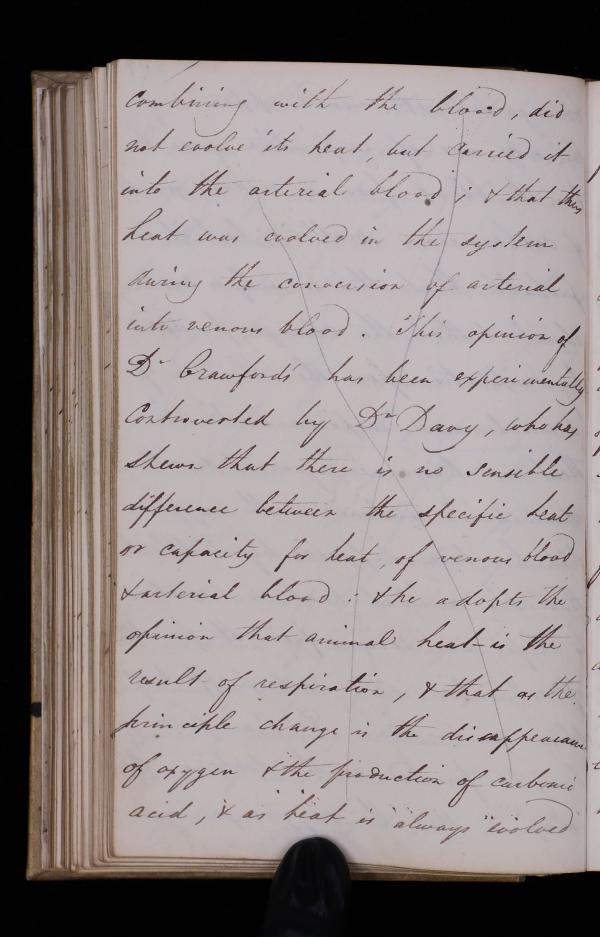 combining with the blood, did
not evolve its heat, but carried it
into the arterial blood; & that this
heat was evolved in the system
during the conversion of arterial
into venous blood. This opinion of
Dr Crawford's has been experimentally
controverted by Dr Davy, who has
shewn that there is no sensible
difference between the specific heat
or capacity for heat, of venous blood
& arterial blood: & he adopts the
opinion that animal heat is the
result of respiration, & that as the
principle change is the disappearance
of oxygen & the production of carbonic
acid, & as heat is always evolved